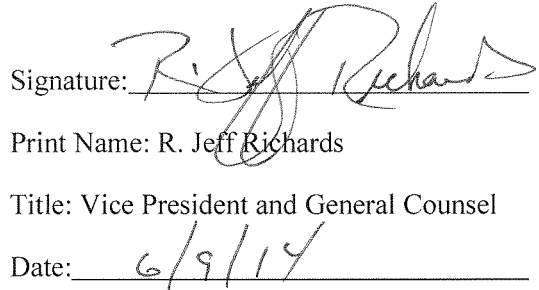 Signature: R. Jeff Richards
Print Name: R. Jeff Richards
Title: Vice President and General Counsel
Date: 6/9/14